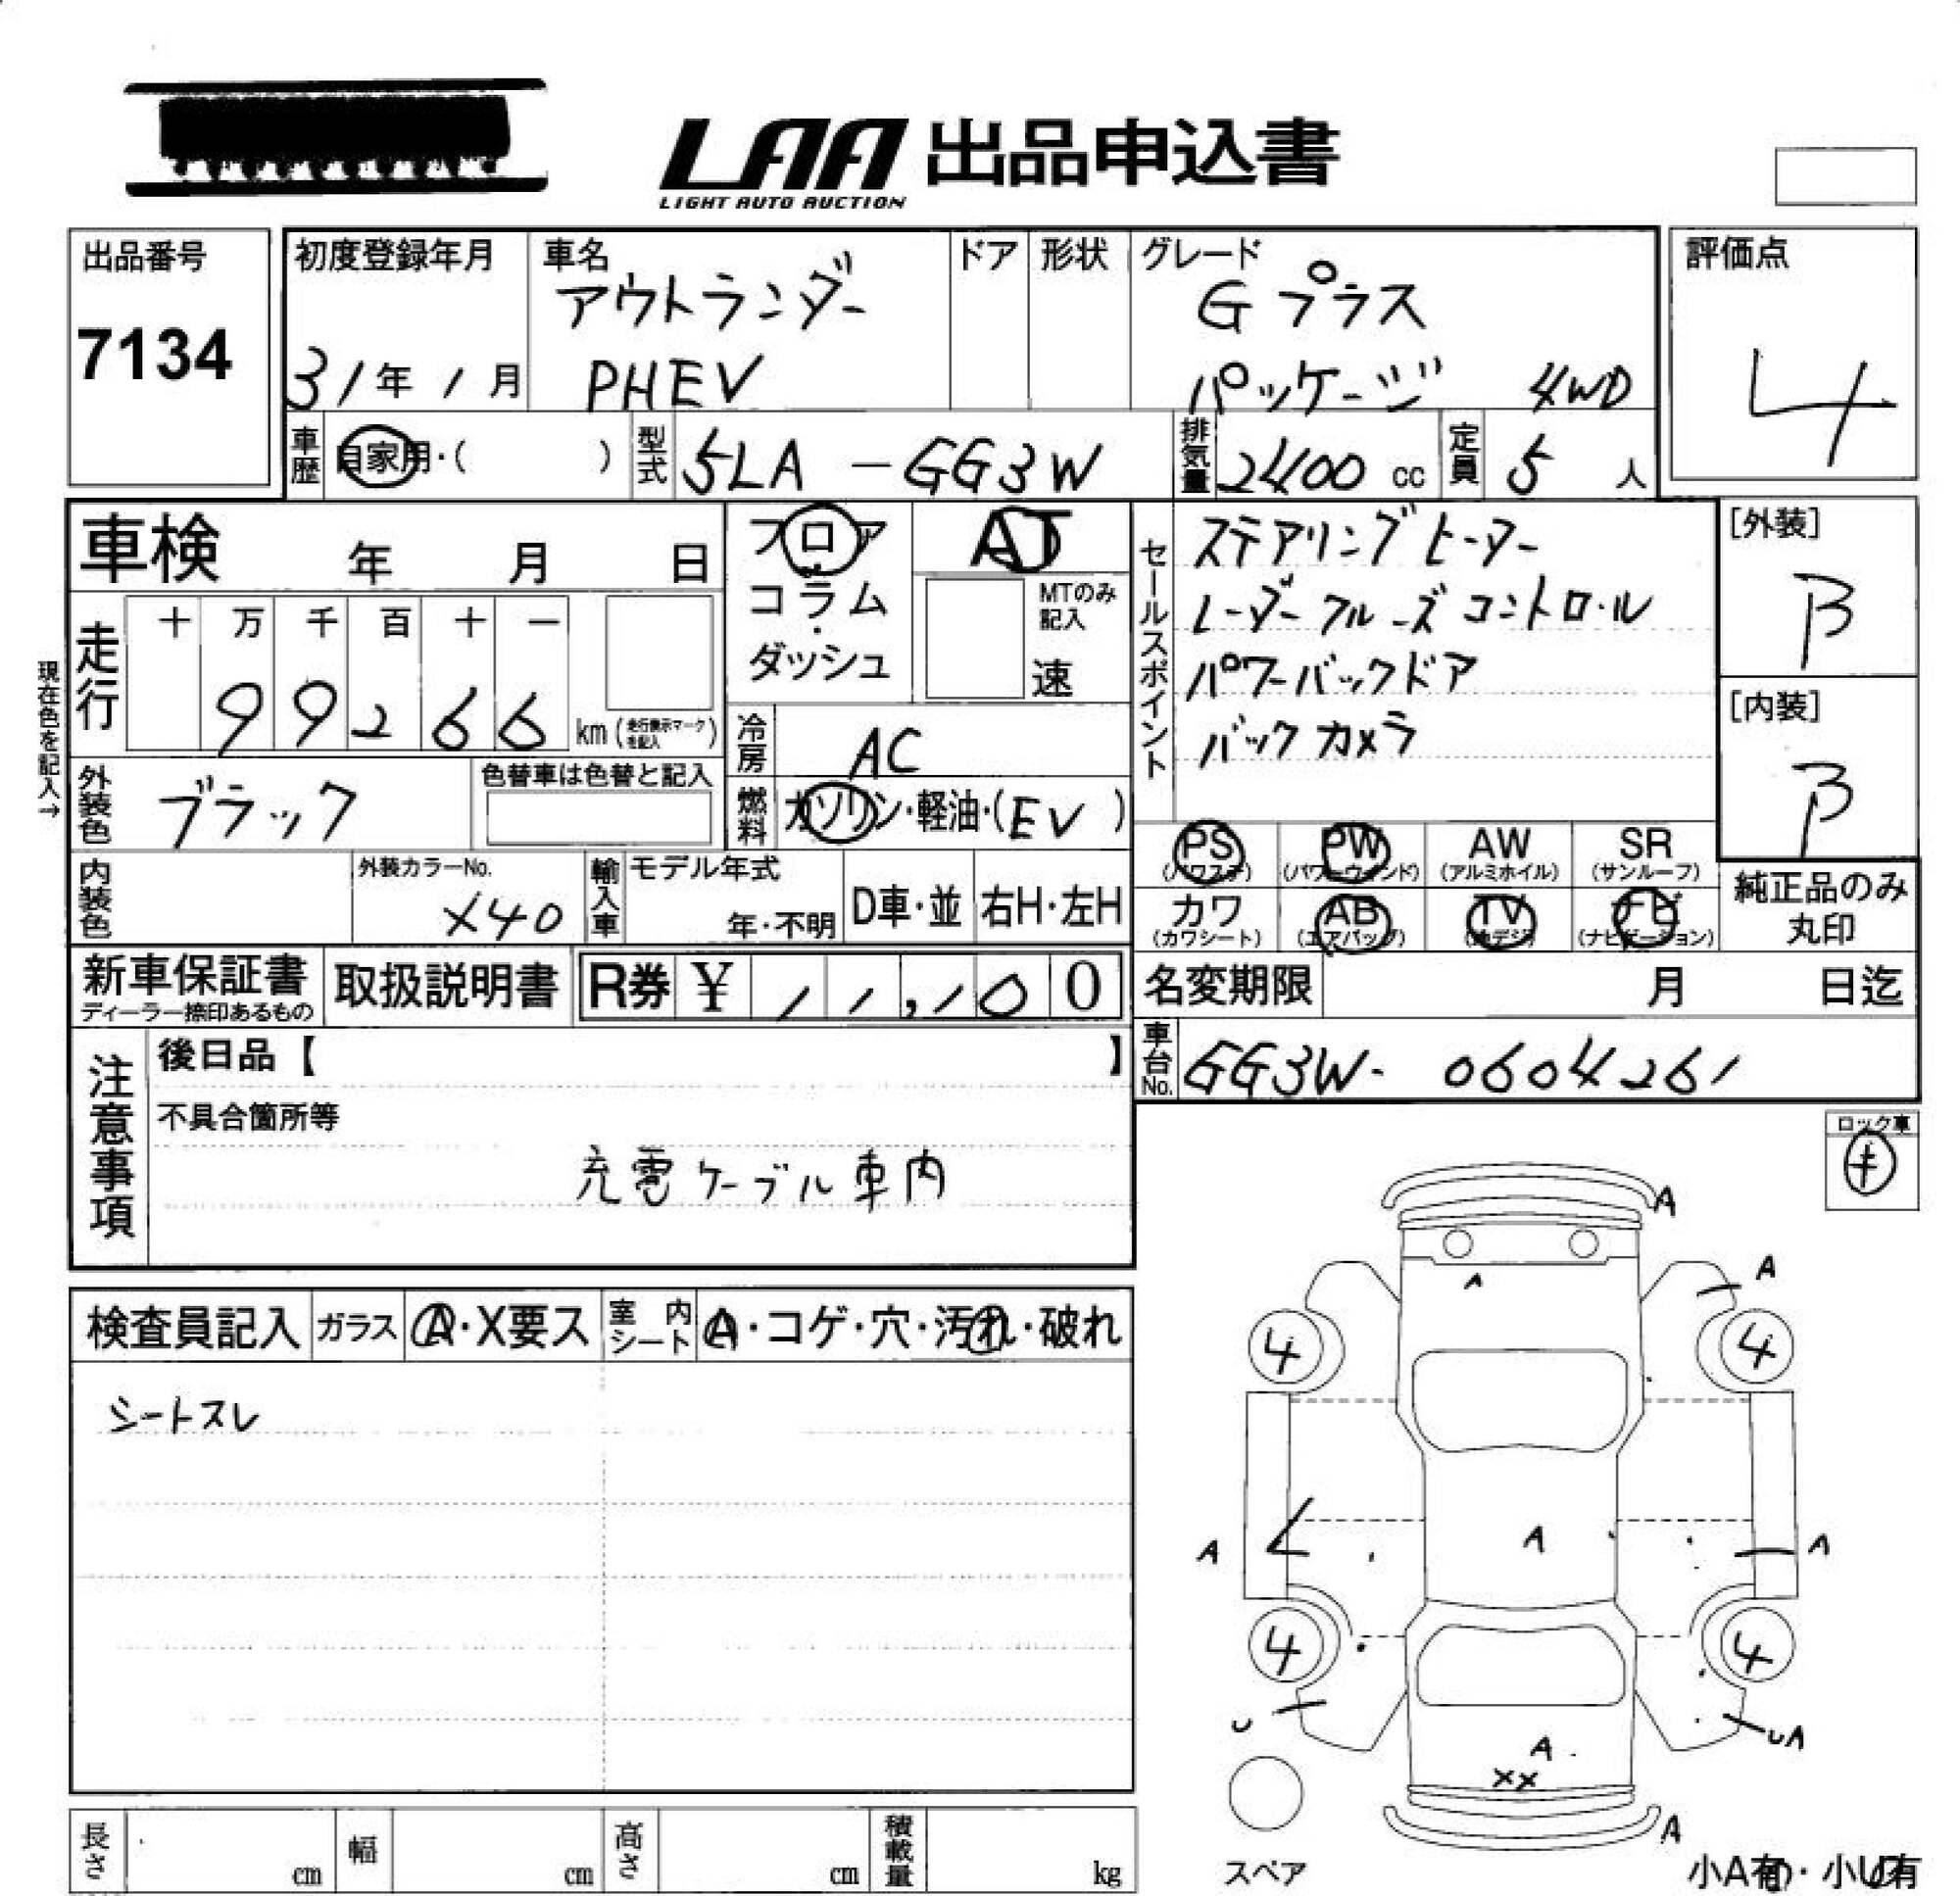 LAA 出品申込書
LIGHT AUTO AUCTION
出品番号
7134
初度登録年月
31年1月
車名
アウトランダー
PHEV
ドア
形状
グレード
Gプラス
パッケージ 4WD
評価点
4
車歴
自家用・( )
型式
5LA-GG3W
排気量
2400 cc
定員
5 人
車検 年 月 日
フロア
コラム
・
ダッシュ
AT
MTのみ
記入
速
セールスポイント
ステアリングヒーター
レーダークルーズコントロール
パワーバックドア
バックカメラ
[外装]
B
[内装]
B
現在色を記入→
走行
十 万 千 百 十 一
99266 km (走行表示マークを記入)
冷房
AC
外装色
ブラック
色替車は色替と記入
燃料
ガソリン・軽油・(EV)
PS
(パワステ)
PW
(パワーウィンド)
AW
(アルミホイル)
SR
(サンルーフ)
内装色
外装カラーNo.
X40
輸入車
モデル年式
年・不明
D車・並
右H・左H
カワ
(カワシート)
AB
(エアバッグ)
TV
(地デジ)
ナビ
(ナビゲーション)
純正品のみ
丸印
新車保証書
ディーラー捺印あるもの
取扱説明書
R券 ¥ 11,100
名変期限 月 日迄
車台No.
GG3W-0604261
注意事項
後日品【 】
不具合箇所等
充電ケーブル車内
ロック車
キ
検査員記入
ガラス
A・X要ス
室内シート
A・コゲ・穴・汚れ・破れ
シートスレ
A
A
A
4
4
A
A
A
4
4
U
UA
A
XX
A
スペア
小A有・小U有
長さ cm
幅 cm
高さ cm
積載量 kg